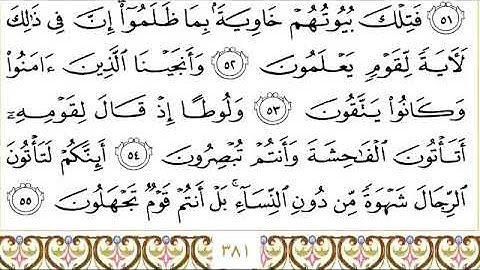 ٥١ فَتِلْكَ بُيُوتُهُمْ خَاوِيَةًۢ بِمَا ظَلَمُوٓا۟ إِنَّ فِى ذَٰلِكَ
لَـَٔايَةً لِّقَوْمٍ يَعْلَمُونَ ٥٢ وَأَنجَيْنَا ٱلَّذِينَ ءَامَنُوا۟
وَكَانُوا۟ يَتَّقُونَ ٥٣ وَلُوطًا إِذْ قَالَ لِقَوْمِهِۦٓ
أَتَأْتُونَ ٱلْفَـٰحِشَةَ وَأَنتُمْ تُبْصِرُونَ ٥٤ أَئِنَّكُمْ لَتَأْتُونَ
ٱلرِّجَالَ شَهْوَةً مِّن دُونِ ٱلنِّسَآءِ ۚ بَلْ أَنتُمْ قَوْمٌ تَجْهَلُونَ ٥٥
٣٨١